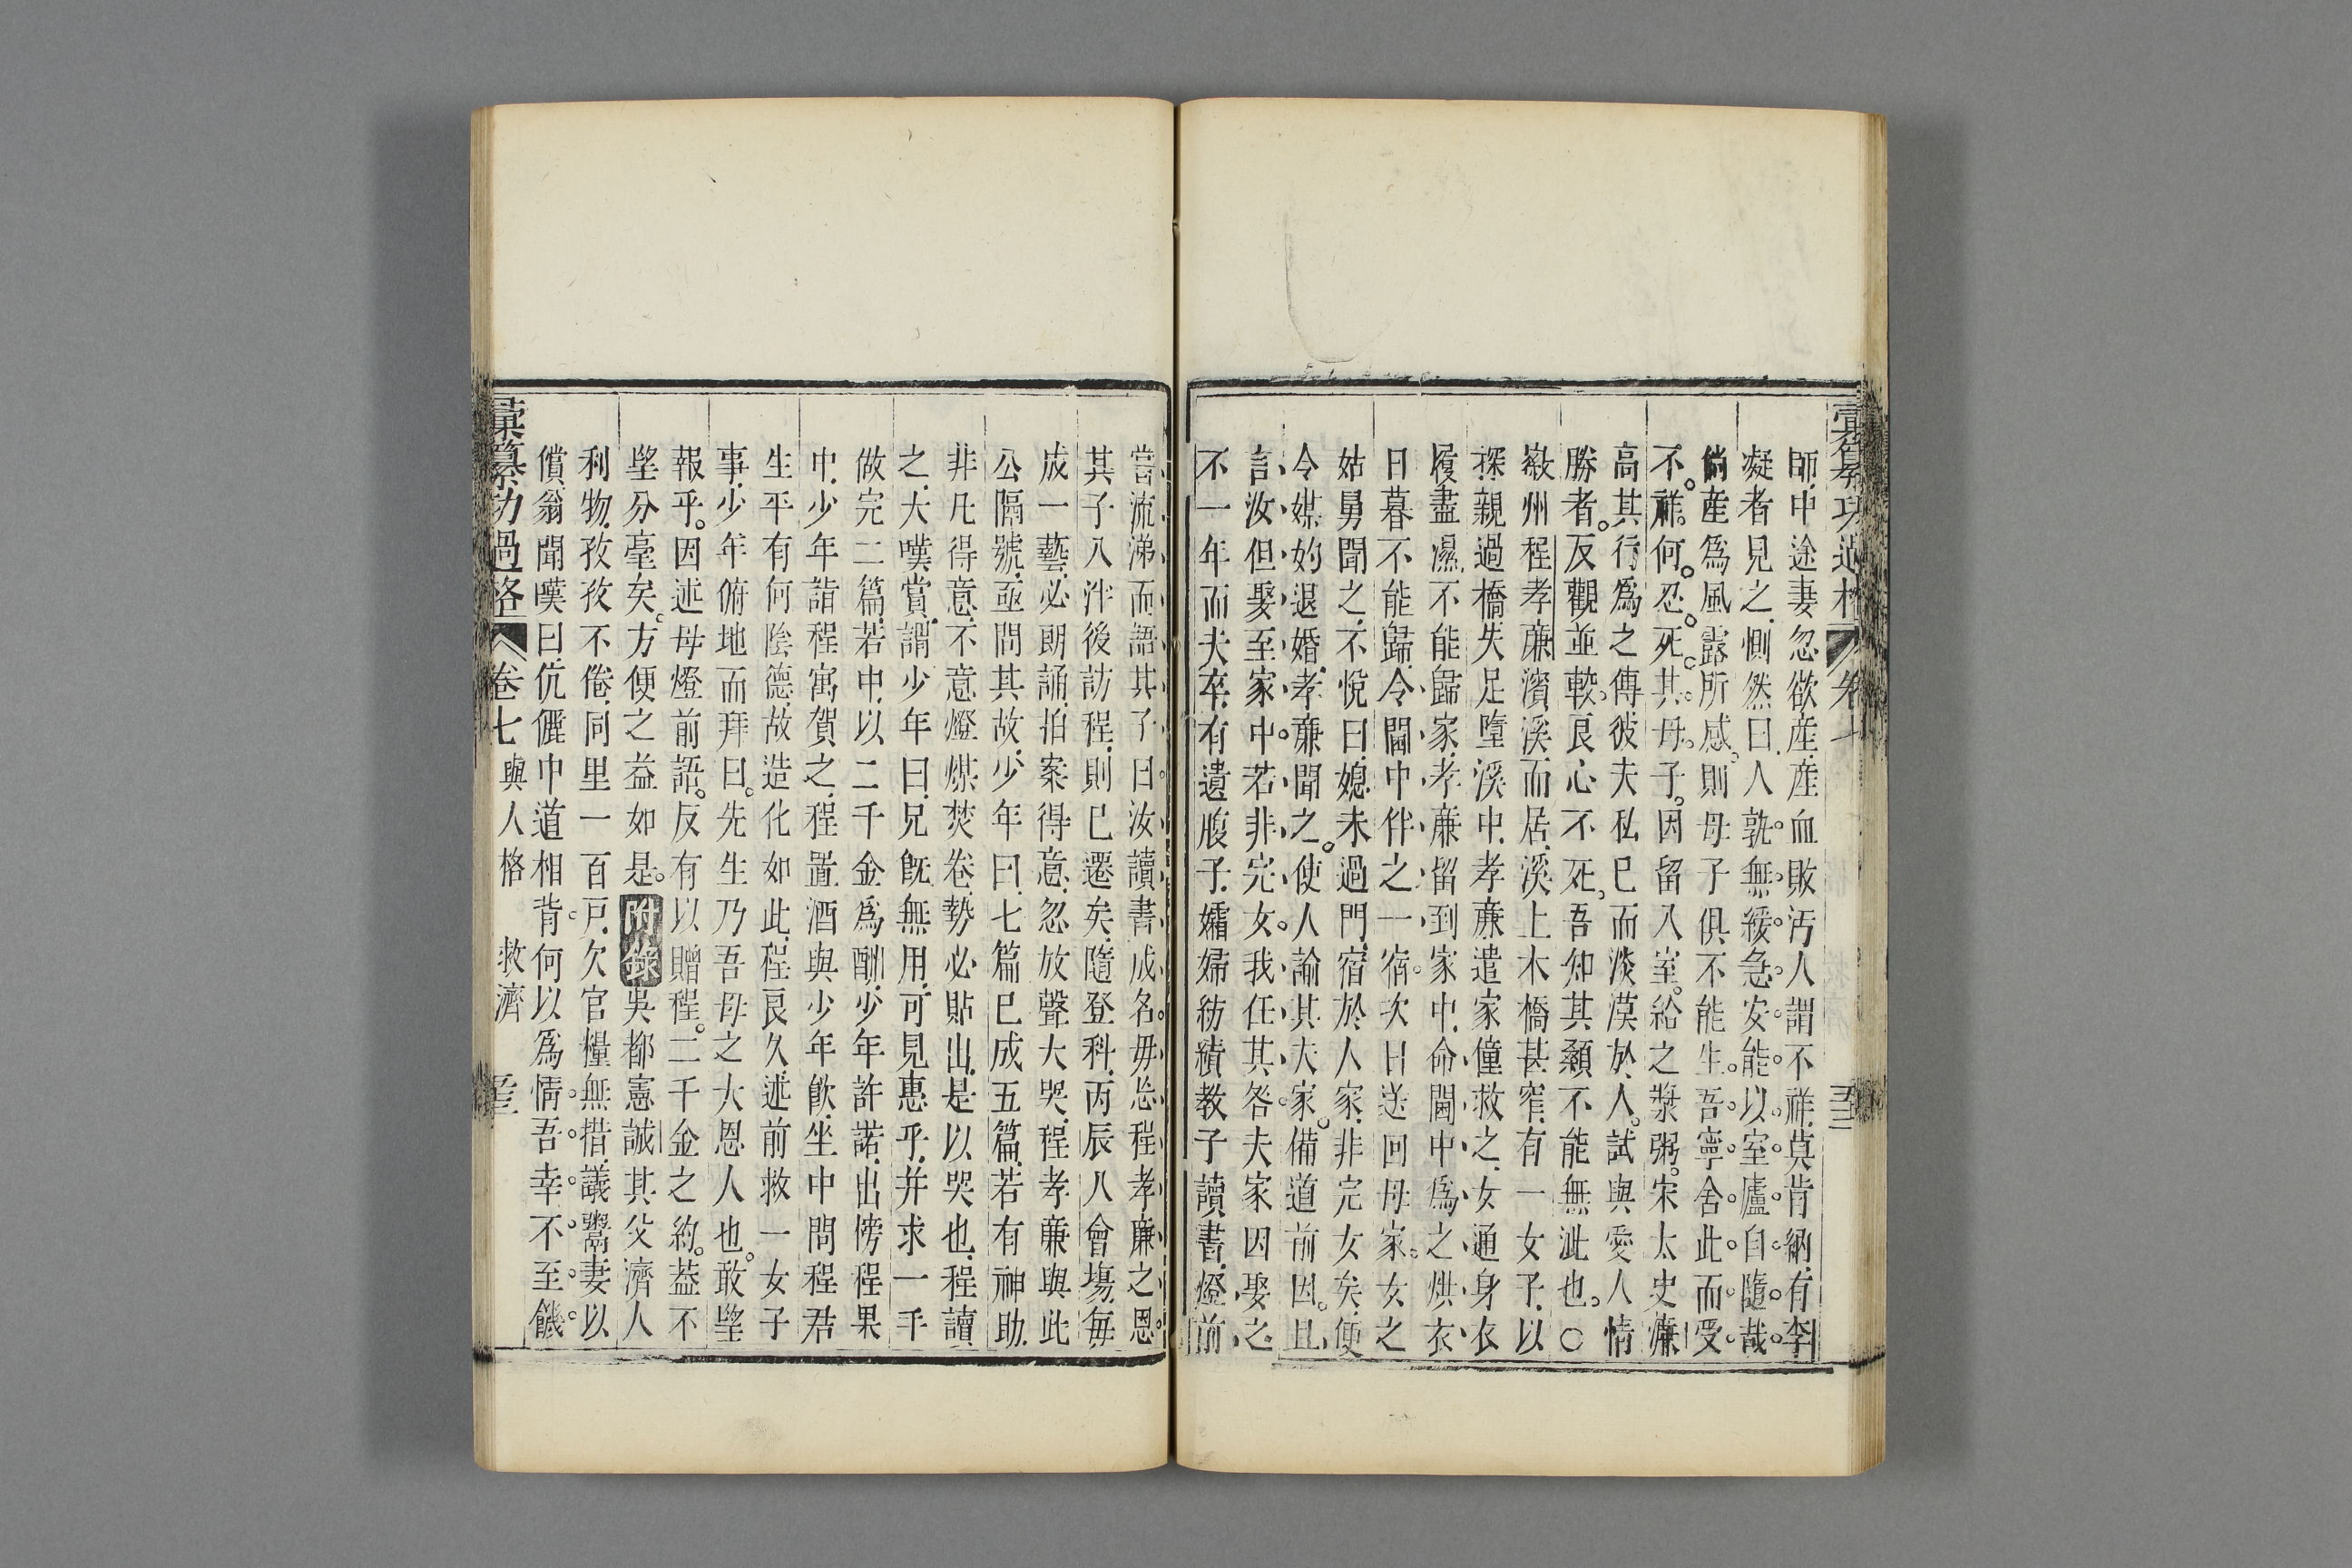 彙纂功過格 卷七 五十二
師中途妻忽欲産産血敗汚人謂不祥莫肯納有李
凝者見之惻然曰人孰無緩急安能以室廬自隨哉
倘産爲風露所感則母子俱不能生吾寧舍此而受
不祥何忍死其母子因留入室給之漿粥宋太史濂
高其行爲之傳彼夫私己而淡漠於人試與愛人情
勝者反觀並較良心不死吾知其顙不能無泚也○
徽州程孝廉濱溪而居溪上木橋甚窄有一女子以
探親過橋失足墮溪中孝廉遣家僮救之女通身衣
履盡濕不能歸家孝廉留到家中命閫中爲之烘衣
日暮不能歸令閫中伴之一宿次日送回母家女之
姑舅聞之不悅曰媳未過門宿於人家非完女矣便
令媒妁退婚孝廉聞之使人諭其夫家備道前因且
言汝但娶至家中若非完女我任其咎夫家因娶之
不一年而夫卒有遺腹子孀婦紡績教子讀書燈前
嘗流涕而語其子曰汝讀書成名毋忘程孝廉之恩
其子入泮後訪程則已遷矣隨登科丙辰入會場每
成一藝必朗誦拍案得意忽放聲大哭程孝廉與此
公隔號亟問其故少年曰七篇已成五篇若有神助
非凡得意不意燈煤焚卷勢必貼出是以哭也程讀
之大嘆賞謂少年曰兄旣無用可見惠乎并求一手
做完二篇若中以二千金爲酬少年許諾出傍程果
中少年詣程寓賀之程置酒與少年飮坐中問程君
生平有何陰德故造化如此程良久述前救一女子
事少年俯地而拜曰先生乃吾母之大恩人也敢望
報乎因述母燈前語反有以贈程二千金之約葢不
望分毫矣方便之益如是附錄吳都憲誠其父濟人
利物孜孜不倦同里一百戸欠官糧無措議鬻妻以
償翁聞嘆曰伉儷中道相背何以爲情吾幸不至饑
彙纂功過格 卷七 與人格 救濟 五十三